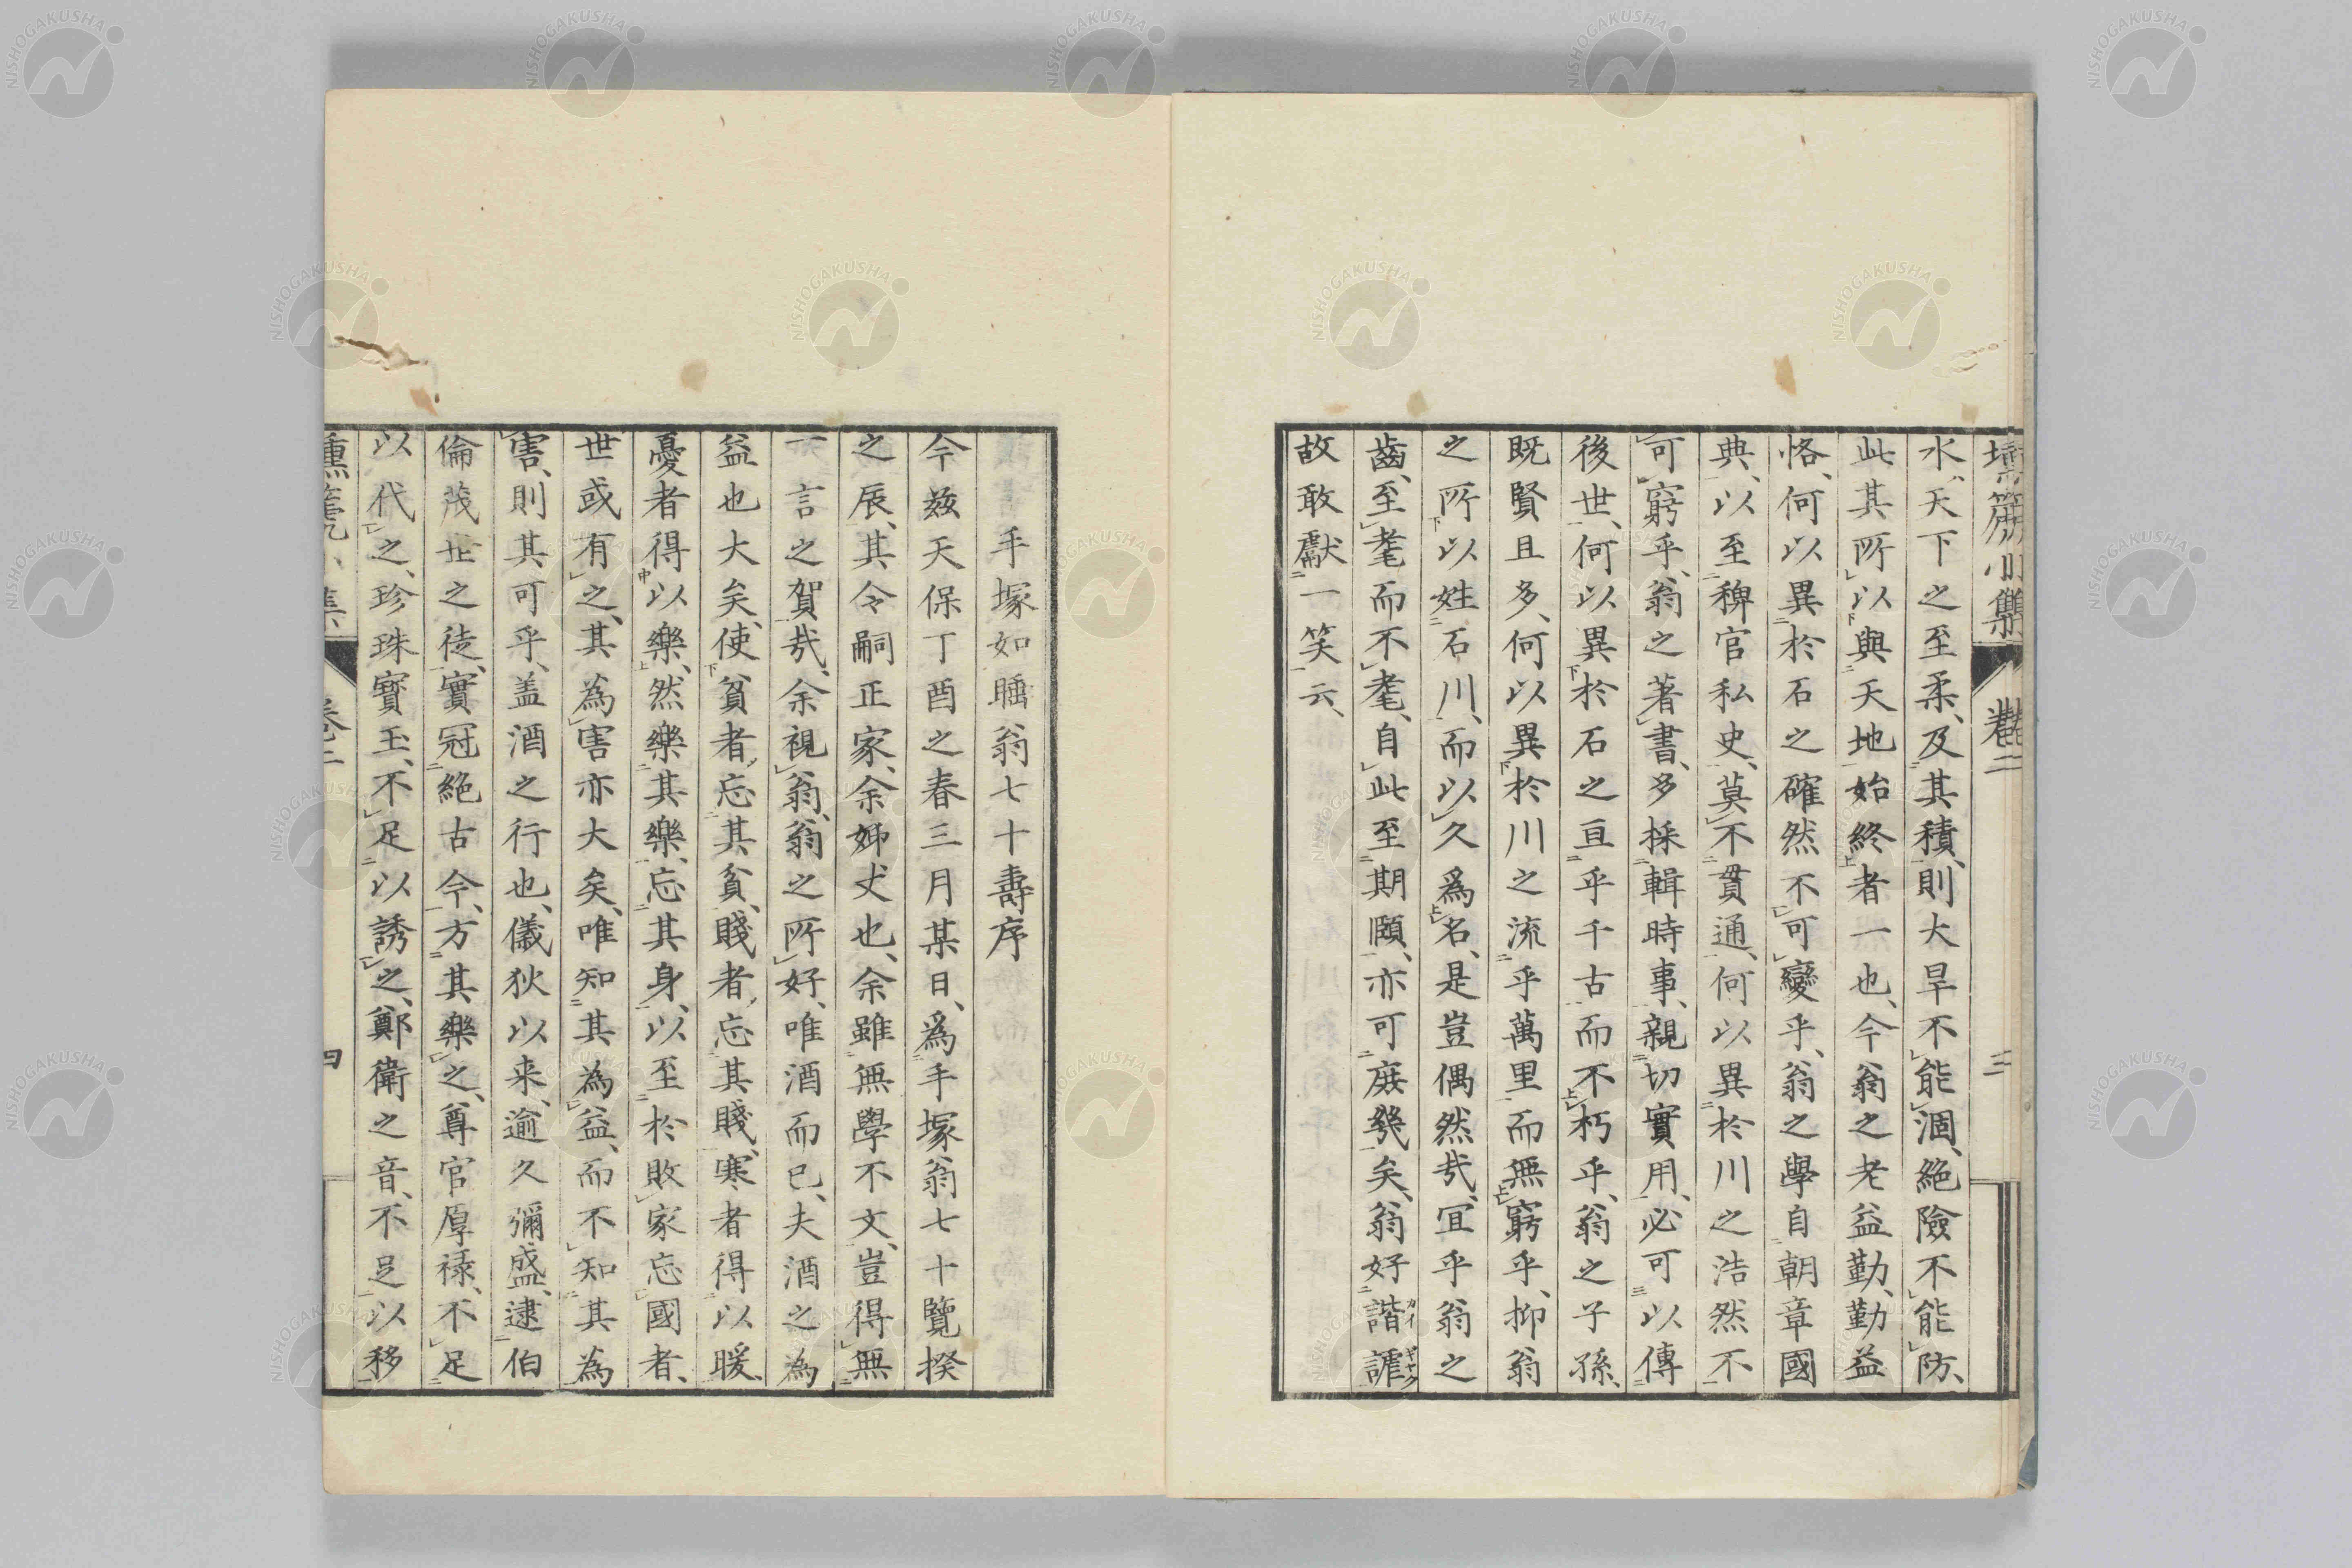 壎篪小集 卷二 三
水、天下之至柔、及其積、則大旱不能涸、絕險不能防、
此其所以與天地始終者一也、今翁之老益勤、勤益
恪、何以異於石之確然不可變乎、翁之學自朝章國
典、以至稗官私史、莫不貫通、何以異於川之浩然不
可窮乎、翁之著書、多採輯時事、親切實用、必可以傳
後世、何以異於石之亘乎千古而不朽乎、翁之子孫、
既賢且多、何以異於川之流乎萬里而無窮乎、抑翁
之所以姓石川、而以久爲名、是豈偶然哉、冝乎翁之
齒、至耄而不耄、自此至期頤、亦可庶幾矣、翁好諧謔
カイ ギヤク
故敢獻一笑云、
手塚如瞃翁七十壽序
今兹天保丁酉之春三月某日、爲手塚翁七十覽揆
之辰、其令嗣正家、余姊丈也、余雖無學不文、豈得無
一言之賀哉、余視翁、翁之所好、唯酒而已、夫酒之為
益也大矣、使貧者、忘其貧、賤者、忘其賤、寒者得以暖、
憂者得以樂、然樂其樂、忘其身、以至於敗家忘國者、
世或有之、其為害亦大矣、唯知其為益、而不知其為
害、則其可乎、盖酒之行也、儀狄以来、逾久彌盛、逮伯
倫茂世之徒、實冠絕古今、方其樂之、尊官厚祿、不足
以代之、珍珠寶玉、不足以誘之、鄭衛之音、不足以移
壎篪小集 卷二 四
NISHOGAKUSHA